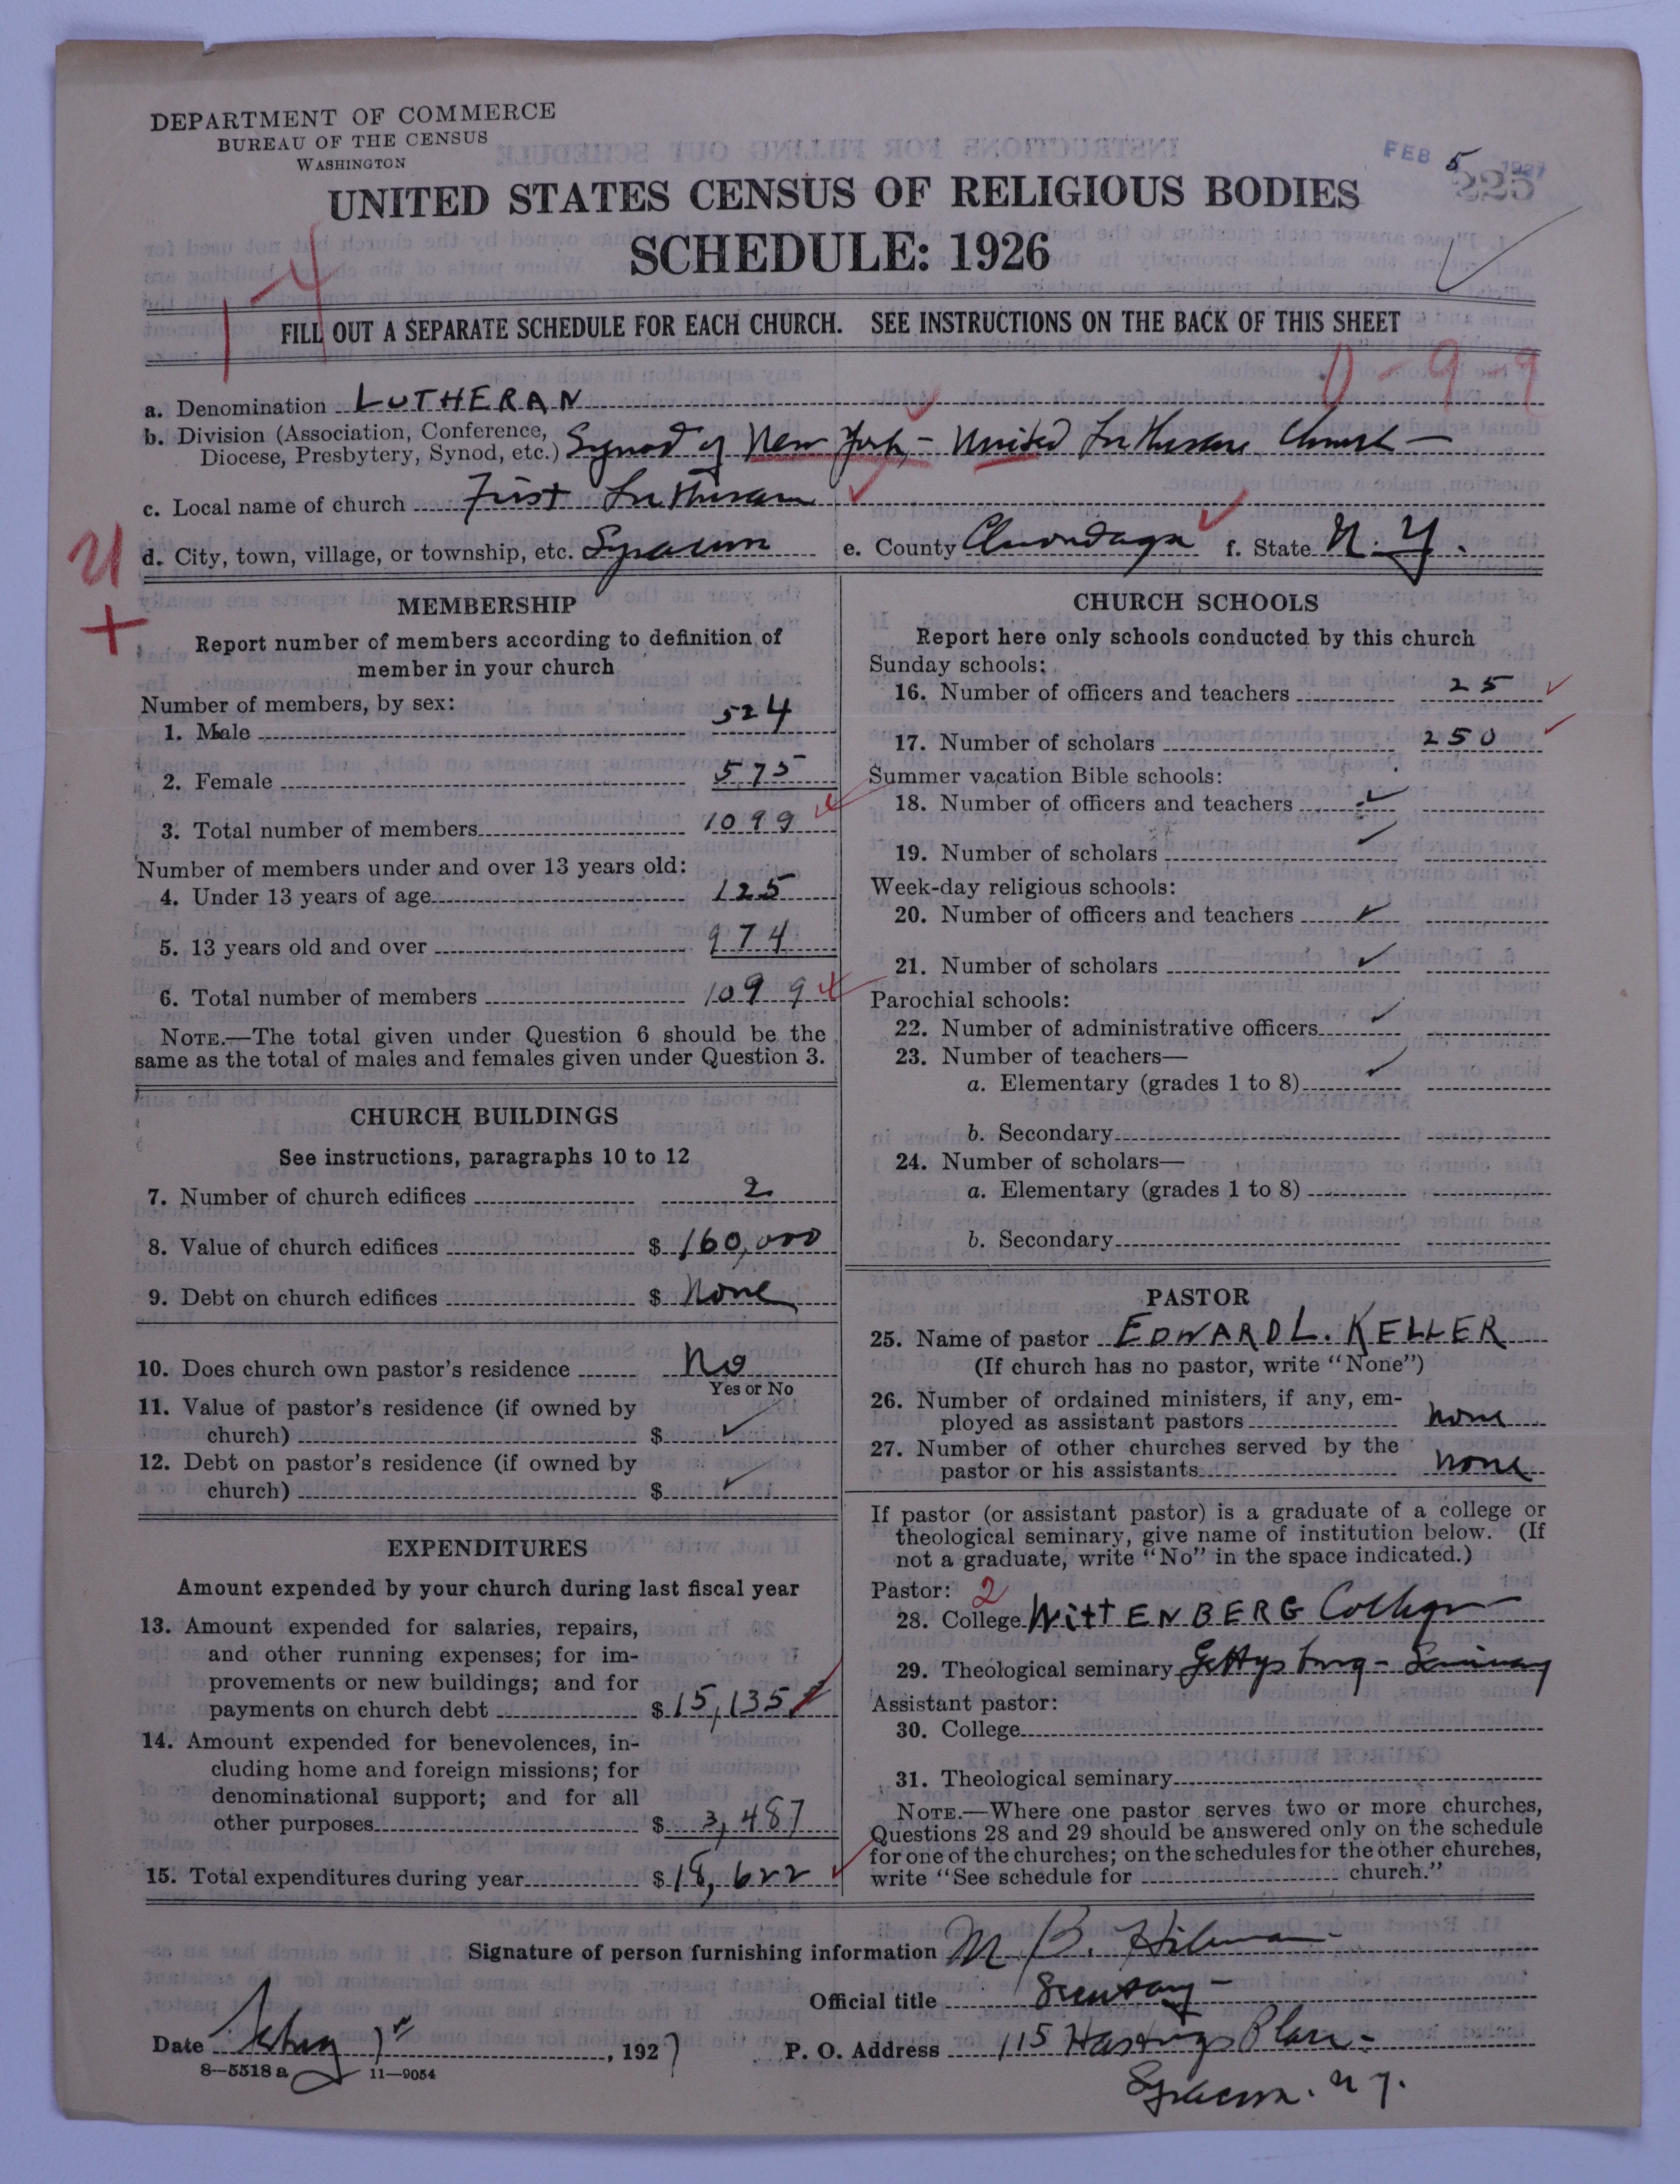 DEPARTMENT OF COMMERCE
BUREAU OF THE CENSUS
WASHINGTON
FEB 5 1927
225
UNITED STATES CENSUS OF RELIGIOUS BODIES
SCHEDULE: 1926
1-4
FILL OUT A SEPARATE SCHEDULE FOR EACH CHURCH. SEE INSTRUCTIONS ON THE BACK OF THIS SHEET
0-99
a. Denomination LUTHERAN
b. Division (Association, Conference, Diocese, Presbytery, Synod, etc.) Synod of New York, - United Lutheran Church -
c. Local name of church First Lutheran
d. City, town, village, or township, etc. Syracuse e. County Onondaga f. State N.Y.
MEMBERSHIP
Report number of members according to definition of
member in your church
Number of members, by sex:
1. Male 524
2. Female 575
3. Total number of members 1099
Number of members under and over 13 years old:
4. Under 13 years of age 125
5. 13 years old and over 974
6. Total number of members 1099
NOTE.—The total given under Question 6 should be the
same as the total of males and females given under Question 3.
CHURCH BUILDINGS
See instructions, paragraphs 10 to 12
7. Number of church edifices 2
8. Value of church edifices $ 160,000
9. Debt on church edifices $ None
10. Does church own pastor's residence No
Yes or No
11. Value of pastor's residence (if owned by
church) $ ✓
12. Debt on pastor's residence (if owned by
church) $ ✓
EXPENDITURES
Amount expended by your church during last fiscal year
13. Amount expended for salaries, repairs,
and other running expenses; for im-
provements or new buildings; and for
payments on church debt $ 15,135
14. Amount expended for benevolences, in-
cluding home and foreign missions; for
denominational support; and for all
other purposes $ 3,487
15. Total expenditures during year $ 18,622
CHURCH SCHOOLS
Report here only schools conducted by this church
Sunday schools:
16. Number of officers and teachers 25
17. Number of scholars 250
Summer vacation Bible schools:
18. Number of officers and teachers ✓
19. Number of scholars ✓
Week-day religious schools:
20. Number of officers and teachers ✓
21. Number of scholars ✓
Parochial schools:
22. Number of administrative officers ✓
23. Number of teachers—
a. Elementary (grades 1 to 8) ✓
b. Secondary
24. Number of scholars—
a. Elementary (grades 1 to 8)
b. Secondary
PASTOR
25. Name of pastor EDWARD L. KELLER
(If church has no pastor, write "None")
26. Number of ordained ministers, if any, em-
ployed as assistant pastors none
27. Number of other churches served by the
pastor or his assistants none
If pastor (or assistant pastor) is a graduate of a college or
theological seminary, give name of institution below. (If
not a graduate, write "No" in the space indicated.)
Pastor: 2
28. College WittENBERG College
29. Theological seminary Gettysburg - Seminary
Assistant pastor:
30. College
31. Theological seminary
NOTE.—Where one pastor serves two or more churches,
Questions 28 and 29 should be answered only on the schedule
for one of the churches; on the schedules for the other churches,
write "See schedule for church."
Signature of person furnishing information M. B.
Official title Secretary -
Date 1st, 1927 P. O. Address 115 Hastings Place -
Syracuse. N Y.
8—5518 a 11—9054